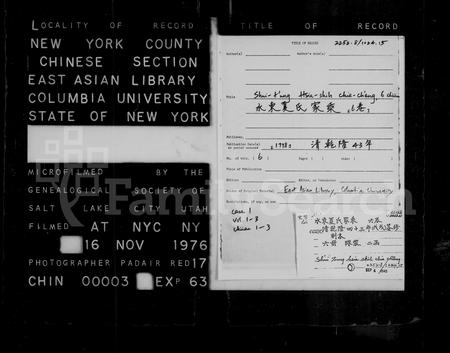 LOCALITY OF RECORD
TITLE OF RECORD
NEW YORK COUNTY
CHINESE SECTION
EAST ASIAN LIBRARY
COLUMBIA UNIVERSITY
STATE OF NEW YORK
MICROFILMED BY THE
GENEALOGICAL SOCIETY OF
SALT LAKE CITY UTAH
FILMED AT NYC NY
16 NOV 1976
PHOTOGRAPHER PADAIR RED 17
CHIN 00003 EXP 63
TITLE OF RECORD
2252.8/1024.15
Author(s)
Title
Shui-tung Hsia-shih chia-ch'eng, 6 chüan
水東夏氏家乘, 6卷
Publisher
(1778) 清乾隆43年
No. of vols. (6)
Place of Publication
East Asian Library, Columbia University
case 1
vol. 1-3
chüan 1-3
水東夏氏家乘 六卷
清乾隆四十三年戊戌
六冊
FamilySearch